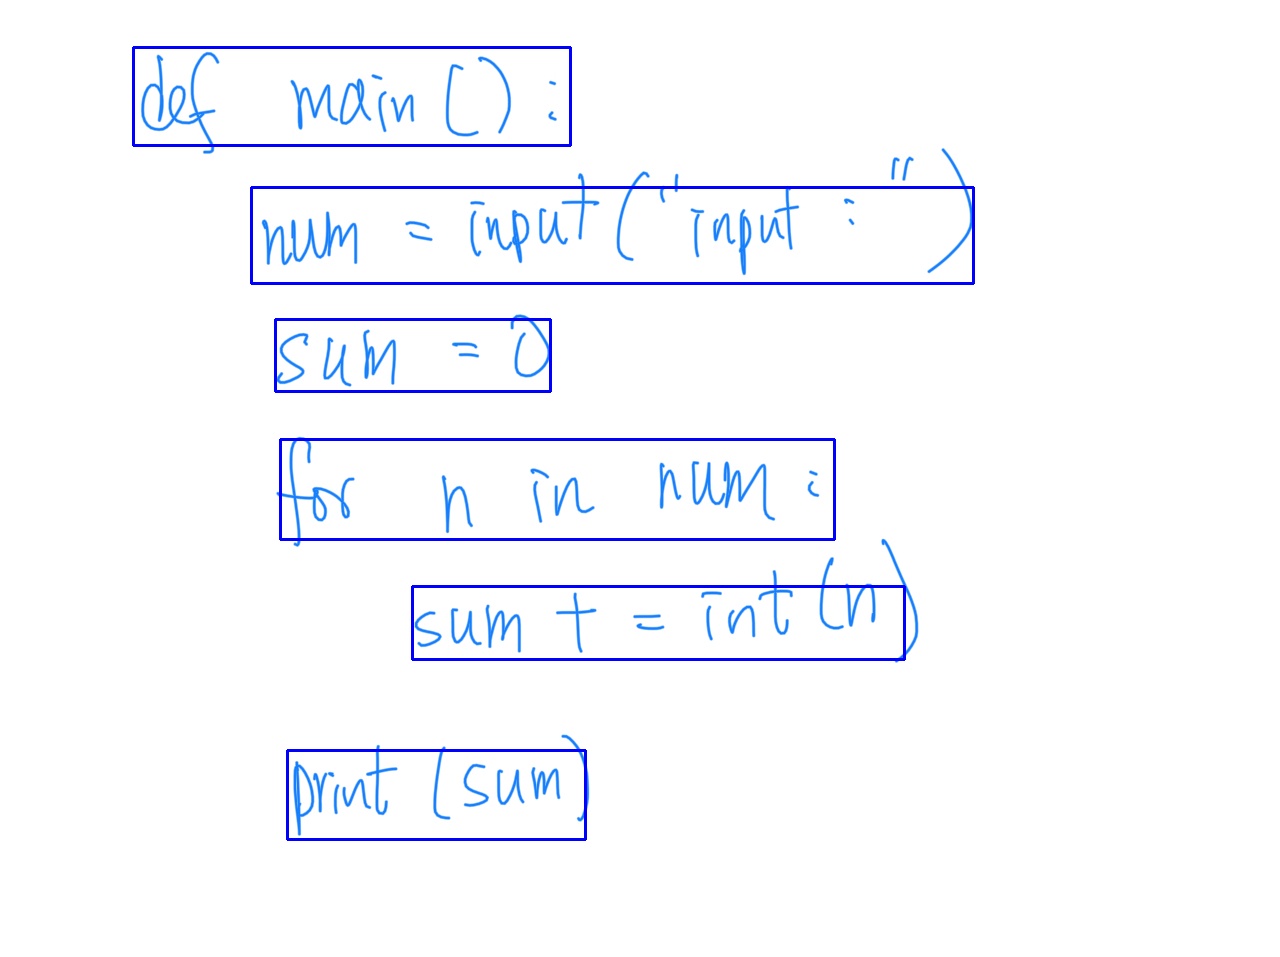 def main():
num = input("input : ")
sum = 0
for n in num:
sum += int(n)
print(sum)